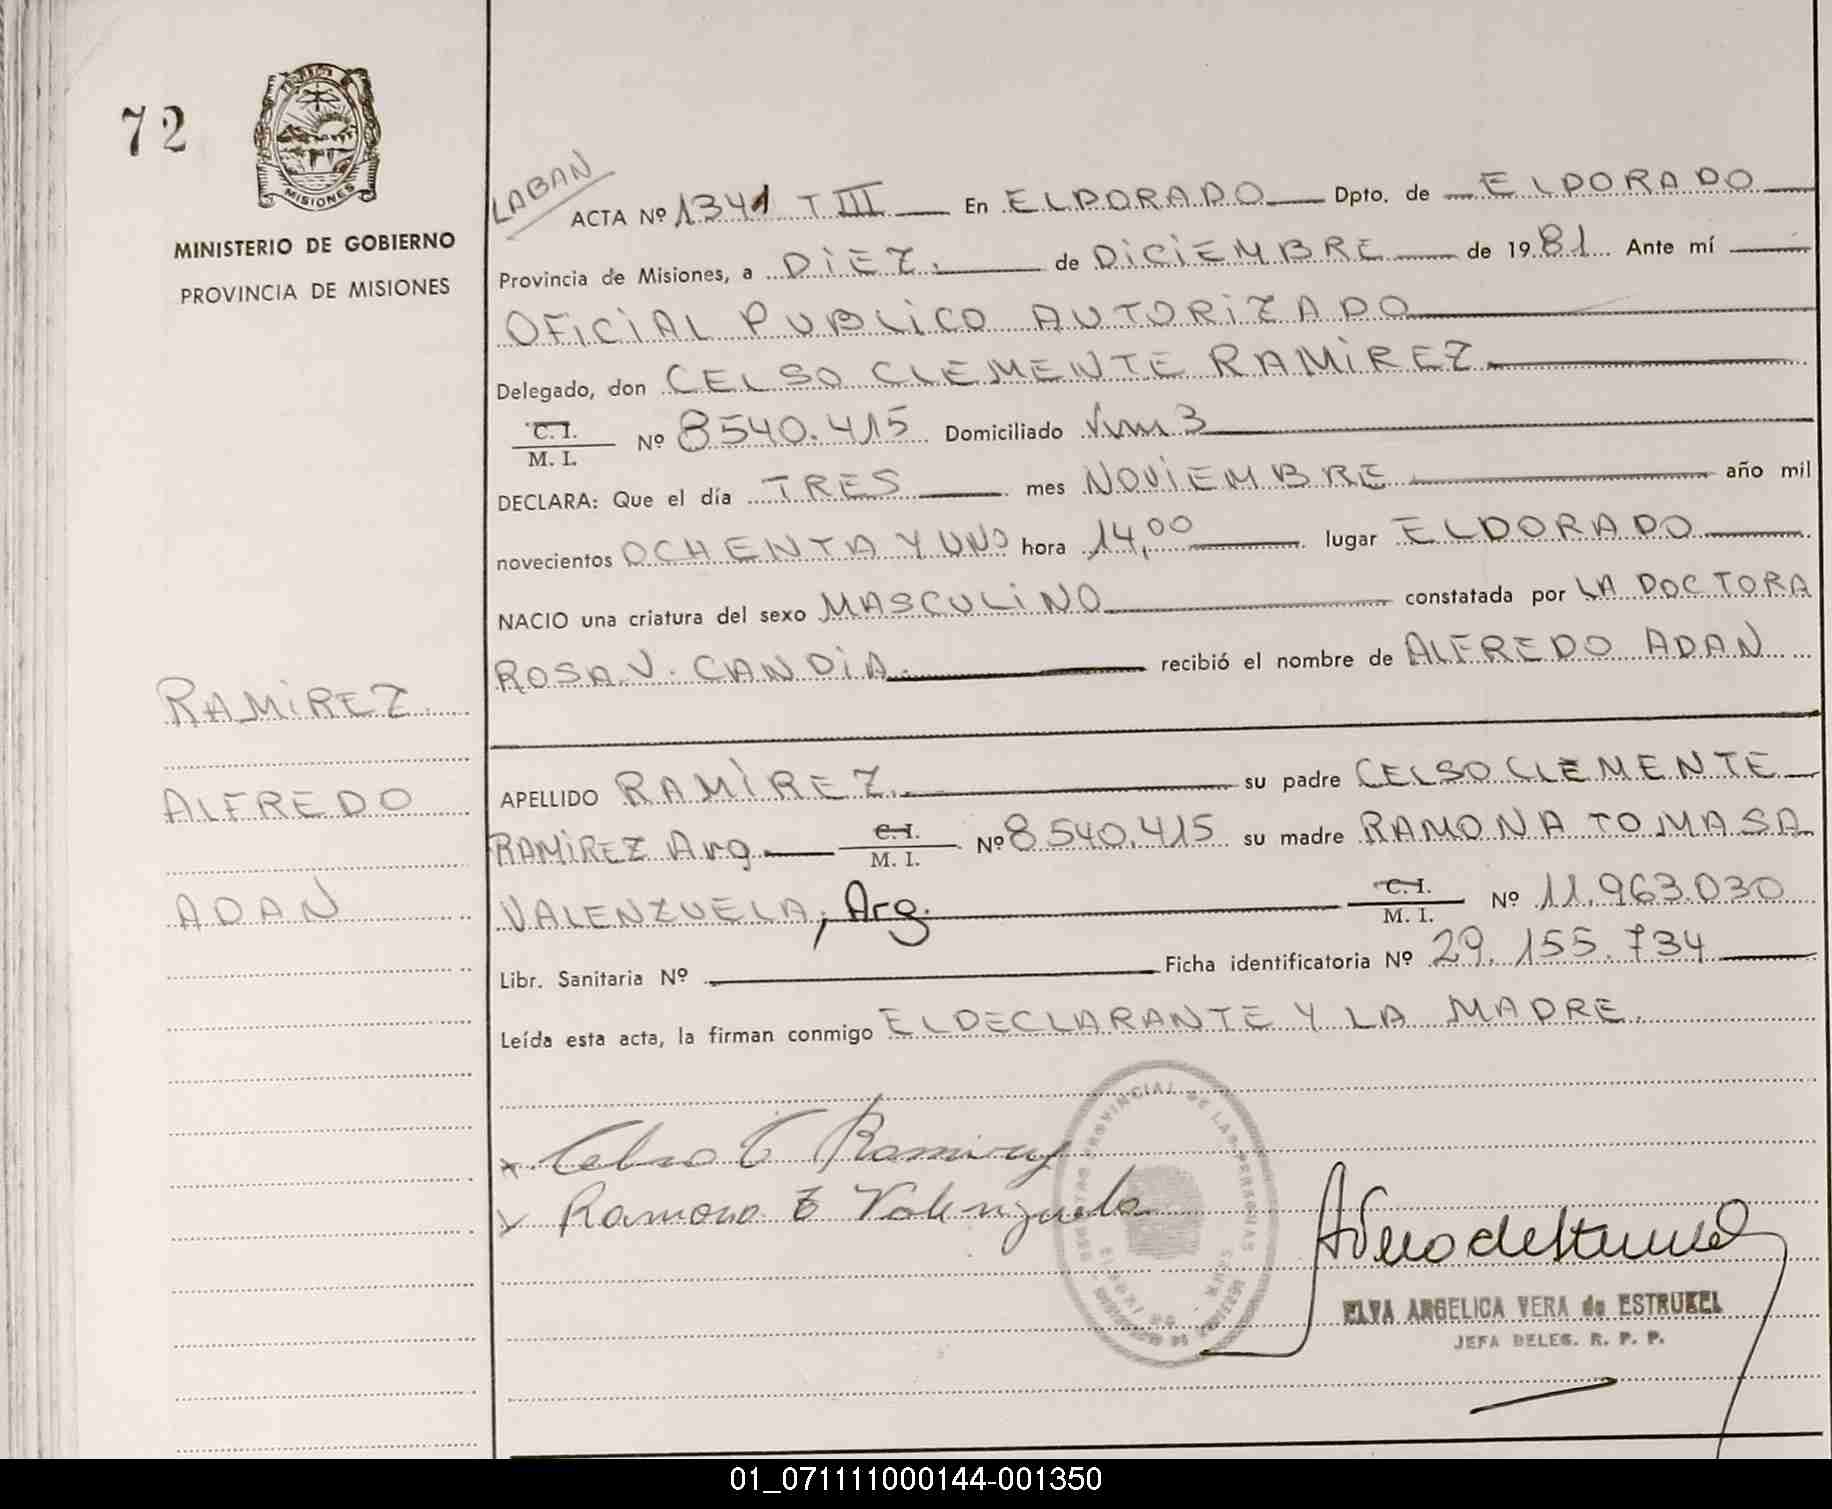 72
MISIONES
MINISTERIO DE GOBIERNO
PROVINCIA DE MISIONES
RAMIREZ
ALFREDO
ADAN
LABAN
ACTA Nº 1341 T III En ELDORADO Dpto. de ELDORADO
Provincia de Misiones, a DIEZ. de DICIEMBRE de 1981 Ante mí
OFICIAL PUBLICO AUTORIZADO
Delegado, don CELSO CLEMENTE RAMIREZ
C. I.
M. I. Nº 8540.415 Domiciliado Km 3
DECLARA: Que el día TRES mes NOVIEMBRE año mil
novecientos OCHENTA Y UNO hora 14,00 lugar ELDORADO
NACIO una criatura del sexo MASCULINO constatada por LA DOCTORA
ROSA V. CANDIA. recibió el nombre de ALFREDO ADAN
APELLIDO RAMIREZ su padre CELSO CLEMENTE
RAMIREZ Arg C. I. M. I. Nº 8540.415 su madre RAMONA TOMASA
VALENZUELA, Arg. C. I. M. I. Nº 11.963.030
Libr. Sanitaria Nº Ficha identificatoria Nº 29.155.734
Leída esta acta, la firman conmigo EL DECLARANTE Y LA MADRE.
Celso C Ramirez
Ramona T Valenzuela
PROVINCIAL DE LAS PERSONAS
ELVA ARGELICA VERA de ESTRUBEL
JEFA DELEG. R. P. P.
01_071111000144-001350